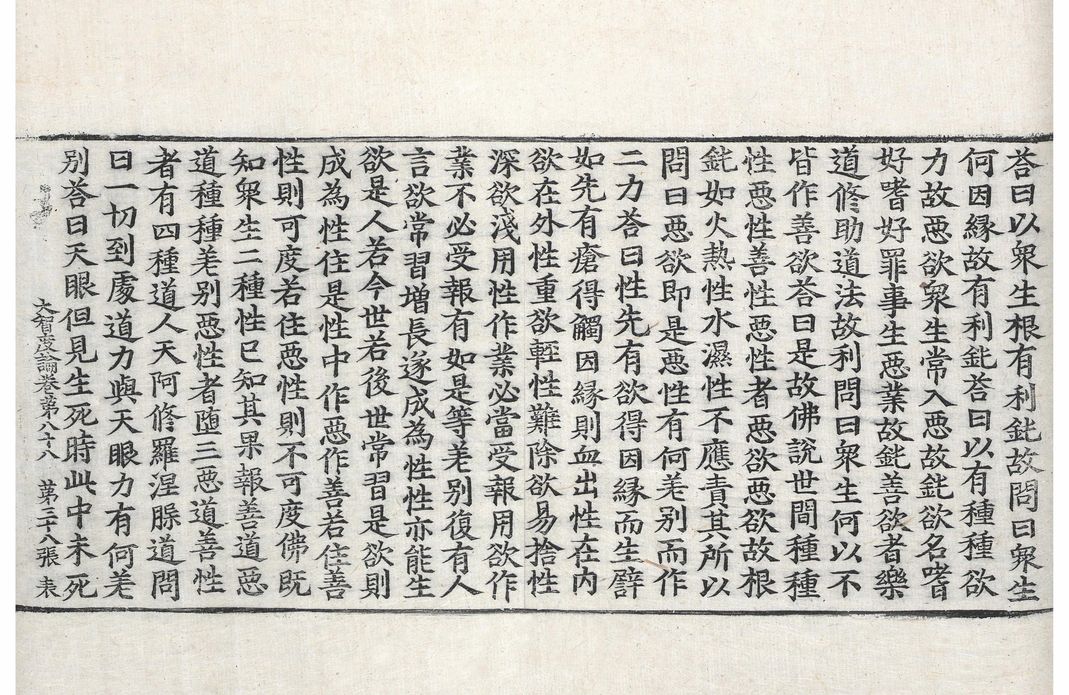 荅曰以衆生根有利鈍故問曰衆生
何因緣故有利鈍荅曰以有種種欲
力故惡欲衆生常入惡故鈍欲名嗜
好嗜好罪事生惡業故鈍善欲者樂
道修助道法故利問曰衆生何以不
皆作善欲荅曰是故佛說世間種種
性惡性善性惡性者惡欲惡欲故根
鈍如火熱性水濕性不應責其所以
問曰惡欲即是惡性有何差别而作
二力荅曰性先有欲得因緣而生譬
如先有瘡得觸因緣則血出性在内
欲在外性重欲輕性難除欲易捨性
深欲淺用性作業必當受報用欲作
業不必受報有如是等差别復有人
言欲常習增長遂成為性性亦能生
欲是人若今世若後世常習是欲則
成為性住是性中作惡作善若住善
性則可度若住惡性則不可度佛既
知衆生二種性已知其果報善道惡
道種種差别惡性者墮三惡道善性
者有四種道人天阿修羅涅槃道問
曰一切到處道力與天眼力有何差
别荅曰天眼但見生死時此中未死
大智度論卷第八十八 第三十八張 袁